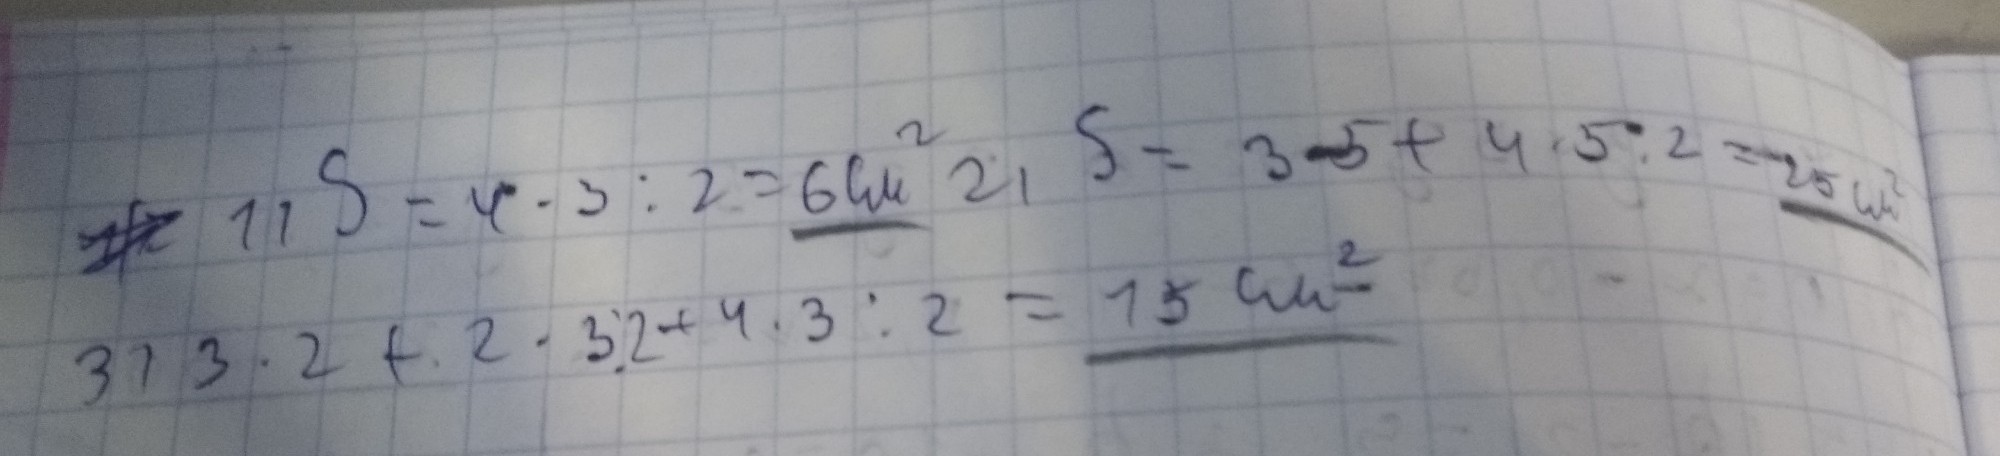 1) S = 4 · 3 : 2 = 6 см² 2) S = 3 · 5 + 4 · 5 : 2 = 25 см²
3) 3 · 2 + 2 · 3 : 2 + 4 · 3 : 2 = 15 см²